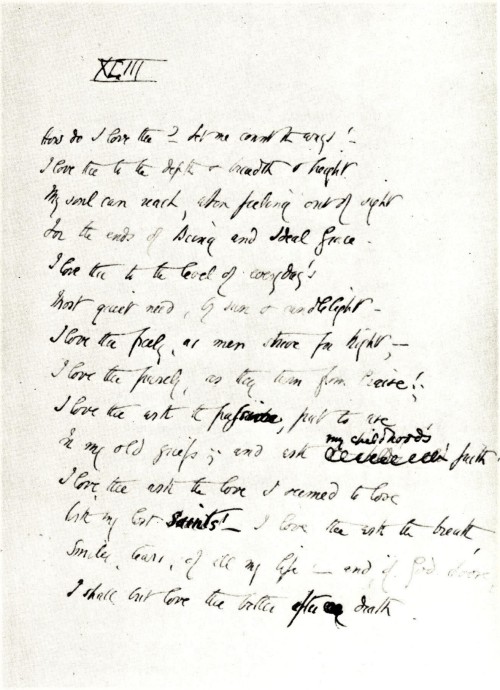 XLIII
How do I love thee? Let me count the ways!—
I love thee to the depth & breadth & height
My soul can reach, when feeling out of sight
For the ends of Being and Ideal Grace.
I love thee to the level of everyday's
Most quiet need, by sun & candlelight—
I love thee freely, as men strive for Right,—
I love thee purely, as they turn from Praise!,
I love thee with the passion, put to use
In my old griefs,—and with my childhood's faith!
I love thee with the love I seemed to lose
With my lost Saints!— I love thee with the breath,
Smiles, tears, of all my life!— and, if God choose,
I shall but love thee better after death.